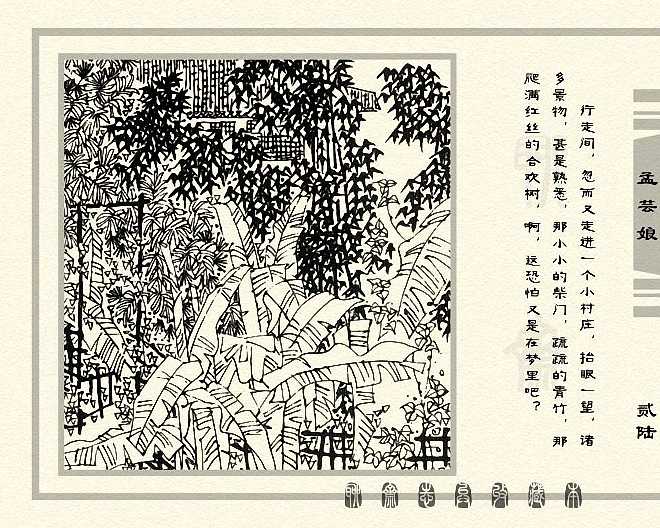 孟芸娘
贰陆
行走间，忽而又走进一个小村庄，抬眼一望，诸
多景物，甚是熟悉，那小小的柴门，疏疏的青竹，那
爬满红丝的合欢树，啊，这恐怕又是在梦里吧？